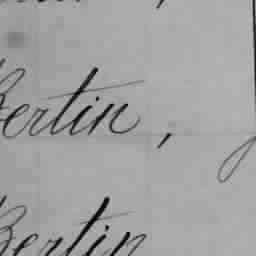 Bertin,
Bertin